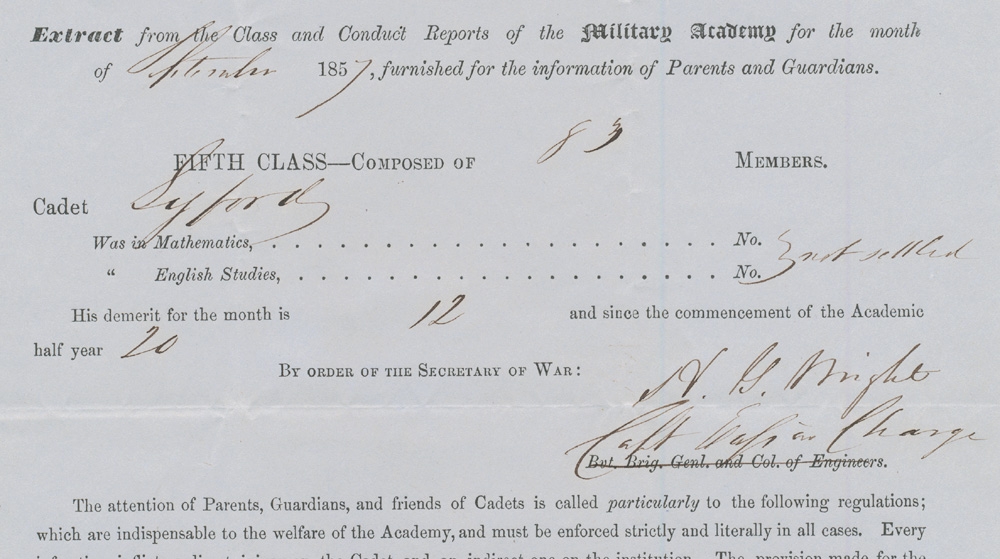 Extract from the Class and Conduct Reports of the Military Academy for the month
of September 1857, furnished for the information of Parents and Guardians.
FIFTH CLASS—COMPOSED OF 83 MEMBERS.
Cadet Lyford
Was in Mathematics, . . . . . . . . . . . . . . . . . . . . . . No.
" English Studies, . . . . . . . . . . . . . . . . . . . . . No. } not settled
His demerit for the month is 12 and since the commencement of the Academic
half year 20
BY ORDER OF THE SECRETARY OF WAR:
H. G. Wright
Capt Engrs in Charge
Bvt. Brig. Genl. and Col. of Engineers.
The attention of Parents, Guardians, and friends of Cadets is called particularly to the following regulations;
which are indispensable to the welfare of the Academy, and must be enforced strictly and literally in all cases. Every
the Cadet and an indirect one on the institution. The provision made for the